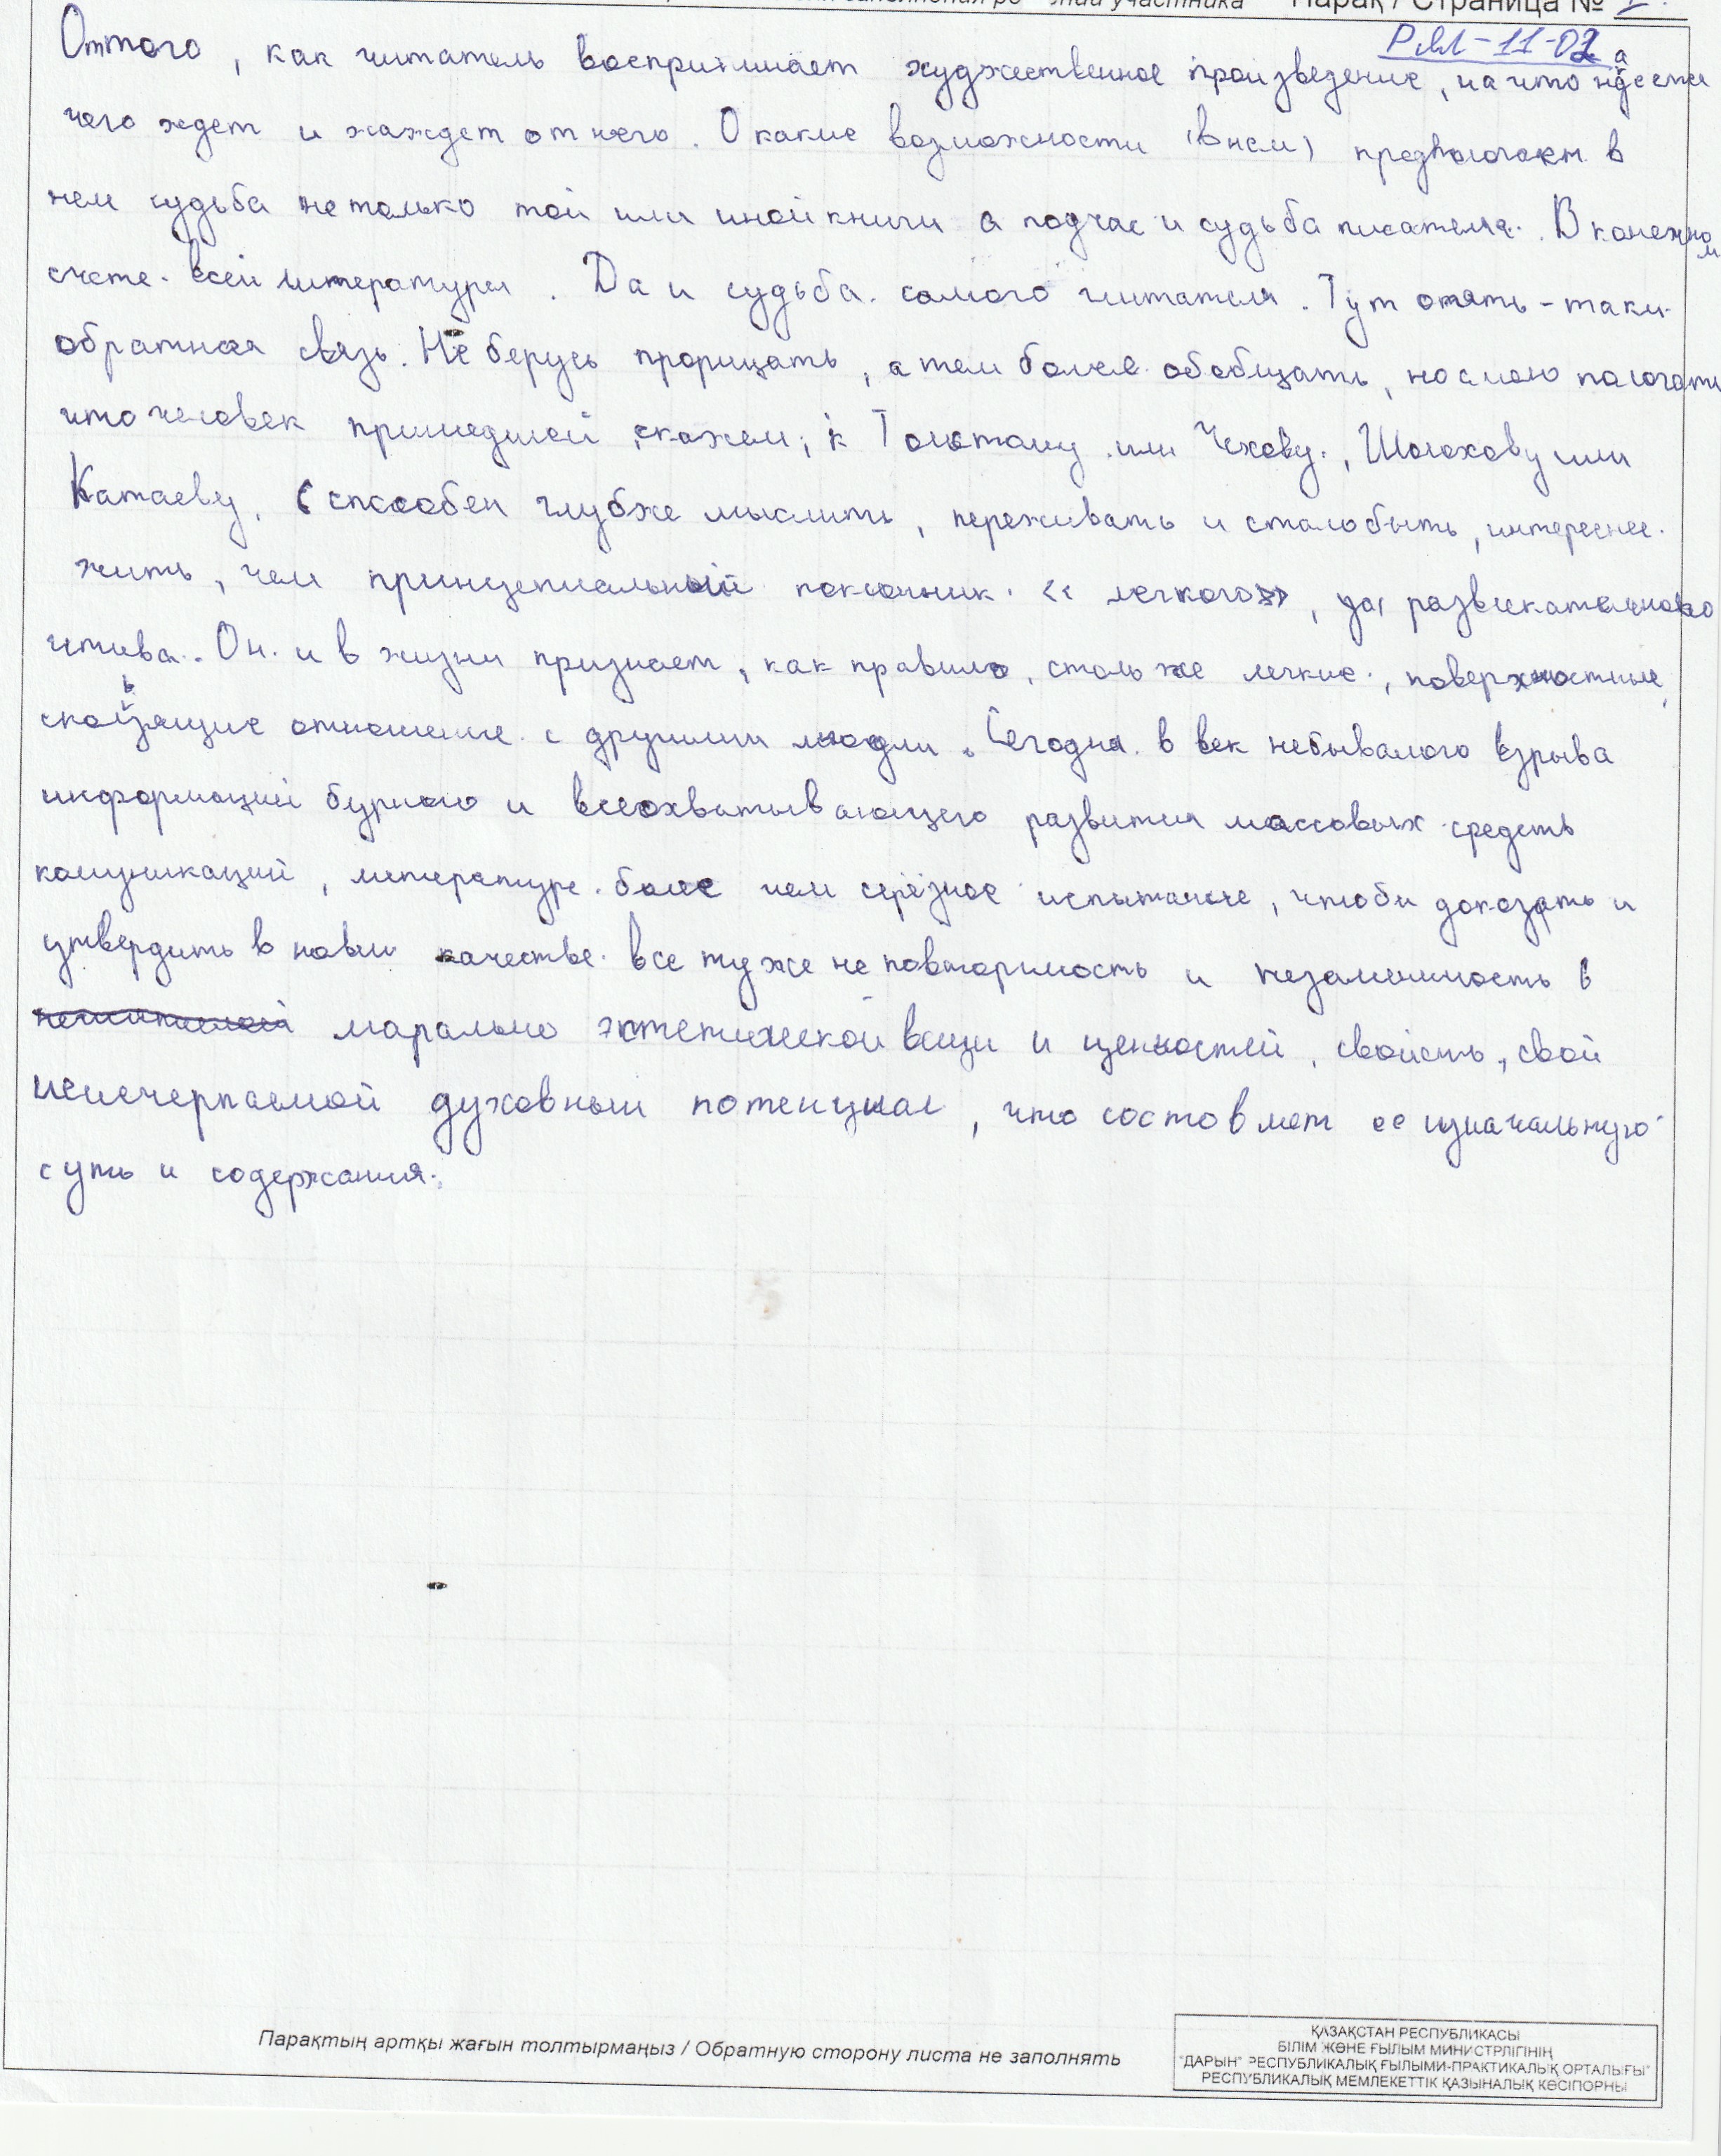 Парақ / Страница №
РЯЛ-11-02
Оттого, как читатель воспринимает художественное произведение, на что
чего ждет и жаждет от него. О какие возможности (в нем) в
нем судьба не только той или иной книги а подчас и судьба писателя. В конечном
счете. всей литературы. Да и судьба. самого читателя. Тут опять-таки
обратная связь. Не берусь прорицать, а тем более обобщать, но смею полагать
что человек пришедшей, скажем, к Толстому или Чехову, Шолохову или
Катаеву, способен глубже мыслить, переживать и стало быть, интереснее.
жить, чем принцепиальный поклонник. «легкого», да, развлекательного
чтива. Он и в жизни признает, как правило, столь же легкие, поверхностные,
скользящие отношение с другими людми. Сегодня в век небывалого взрыва
информаций бурного и всеохватывающего развития массовых средств
комуникаций, литературе более чем серёзное испытание, чтобы доказать и
утвердить в новы качестве. все ту же не повторимость и незаминность в
морально эптетической вещи и ценностей, свойств, свой
неисчерпаемой духовным потенциал, что состовляет ее изначальную
суть и содержания.
Парақтың артқы жағын толтырмаңыз / Обратную сторону листа не заполнять
ҚАЗАҚСТАН РЕСПУБЛИКАСЫ
БІЛІМ ЖӘНЕ ҒЫЛЫМ МИНИСТРЛІГІНІҢ
"ДАРЫН" РЕСПУБЛИКАЛЫҚ ҒЫЛЫМИ-ПРАКТИКАЛЫҚ ОРТАЛЫҒЫ"
РЕСПУБЛИКАЛЫҚ МЕМЛЕКЕТТІК ҚАЗЫНАЛЫҚ КӘСІПОРНЫ